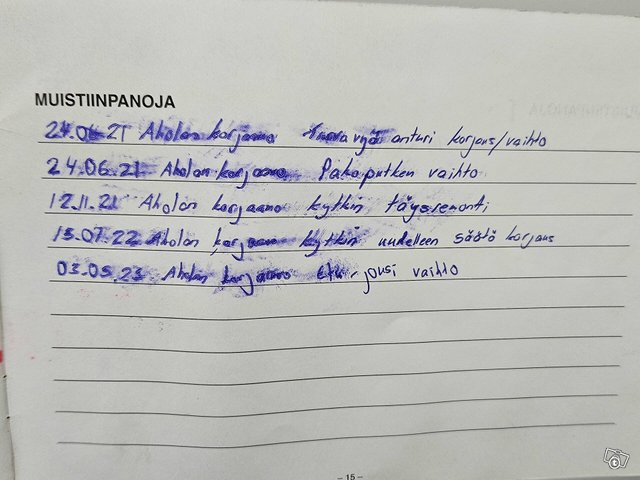 MUISTIINPANOJA
24.06 21 Aholan korjaamo Turvavyö anturi korjaus/vaihto
24.06.21 Aholan korjaamo Pakoputken vaihto
12.11.21 Aholan korjaamo kytkin täysremonti
15.07.22 Aholan korjaamo kytkin uudelleen säätö korjaus
03.05.23 Aholan korjaamo Etu-jousi vaihto
- 15 -